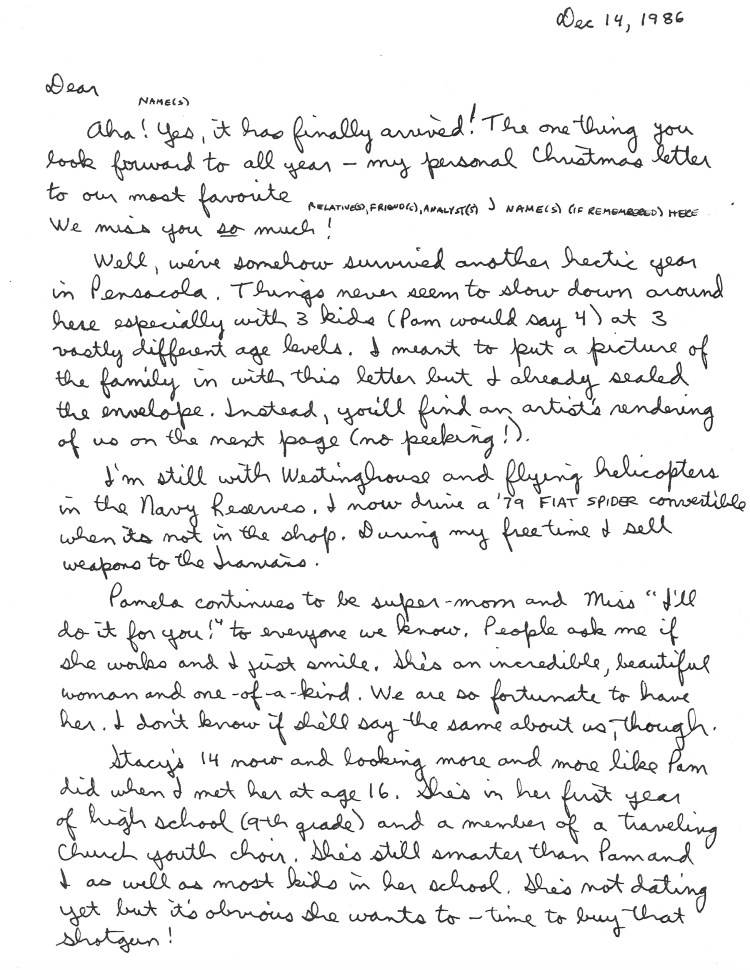 Dec 14, 1986
Dear
NAME(S)
Aha! Yes, it has finally arrived! The one thing you
look forward to all year – my personal Christmas letter
to our most favorite
RELATIVE(S), FRIEND(S), ANALYST(S) & NAME(S) (IF REMEMBERED) HERE
We miss you so much!
Well, we've somehow survived another hectic year
in Pensacola. Things never seem to slow down around
here especially with 3 kids (Pam would say 4) at 3
vastly different age levels. I meant to put a picture of
the family in with this letter but I already sealed
the envelope. Instead, you'll find an artist's rendering
of us on the next page (no peeking!).
I'm still with Westinghouse and flying helicopters
in the Navy Reserves. I now drive a '79 FIAT SPIDER convertible
when its not in the shop. During my free time I sell
weapons to the Iranians.
Pamela continues to be super-mom and Miss "I'll
do it for you!" to everyone we know. People ask me if
she works and I just smile. She's an incredible, beautiful
woman and one-of-a-kind. We are so fortunate to have
her. I don't know if she'll say the same about us, though.
Stacy's 14 now and looking more and more like Pam
did when I met her at age 16. She's in her first year
of high school (9th grade) and a member of a traveling
church youth choir. She's still smarter than Pam and
I as well as most kids in her school. She's not dating
yet but it's obvious she wants to – time to buy that
shotgun!